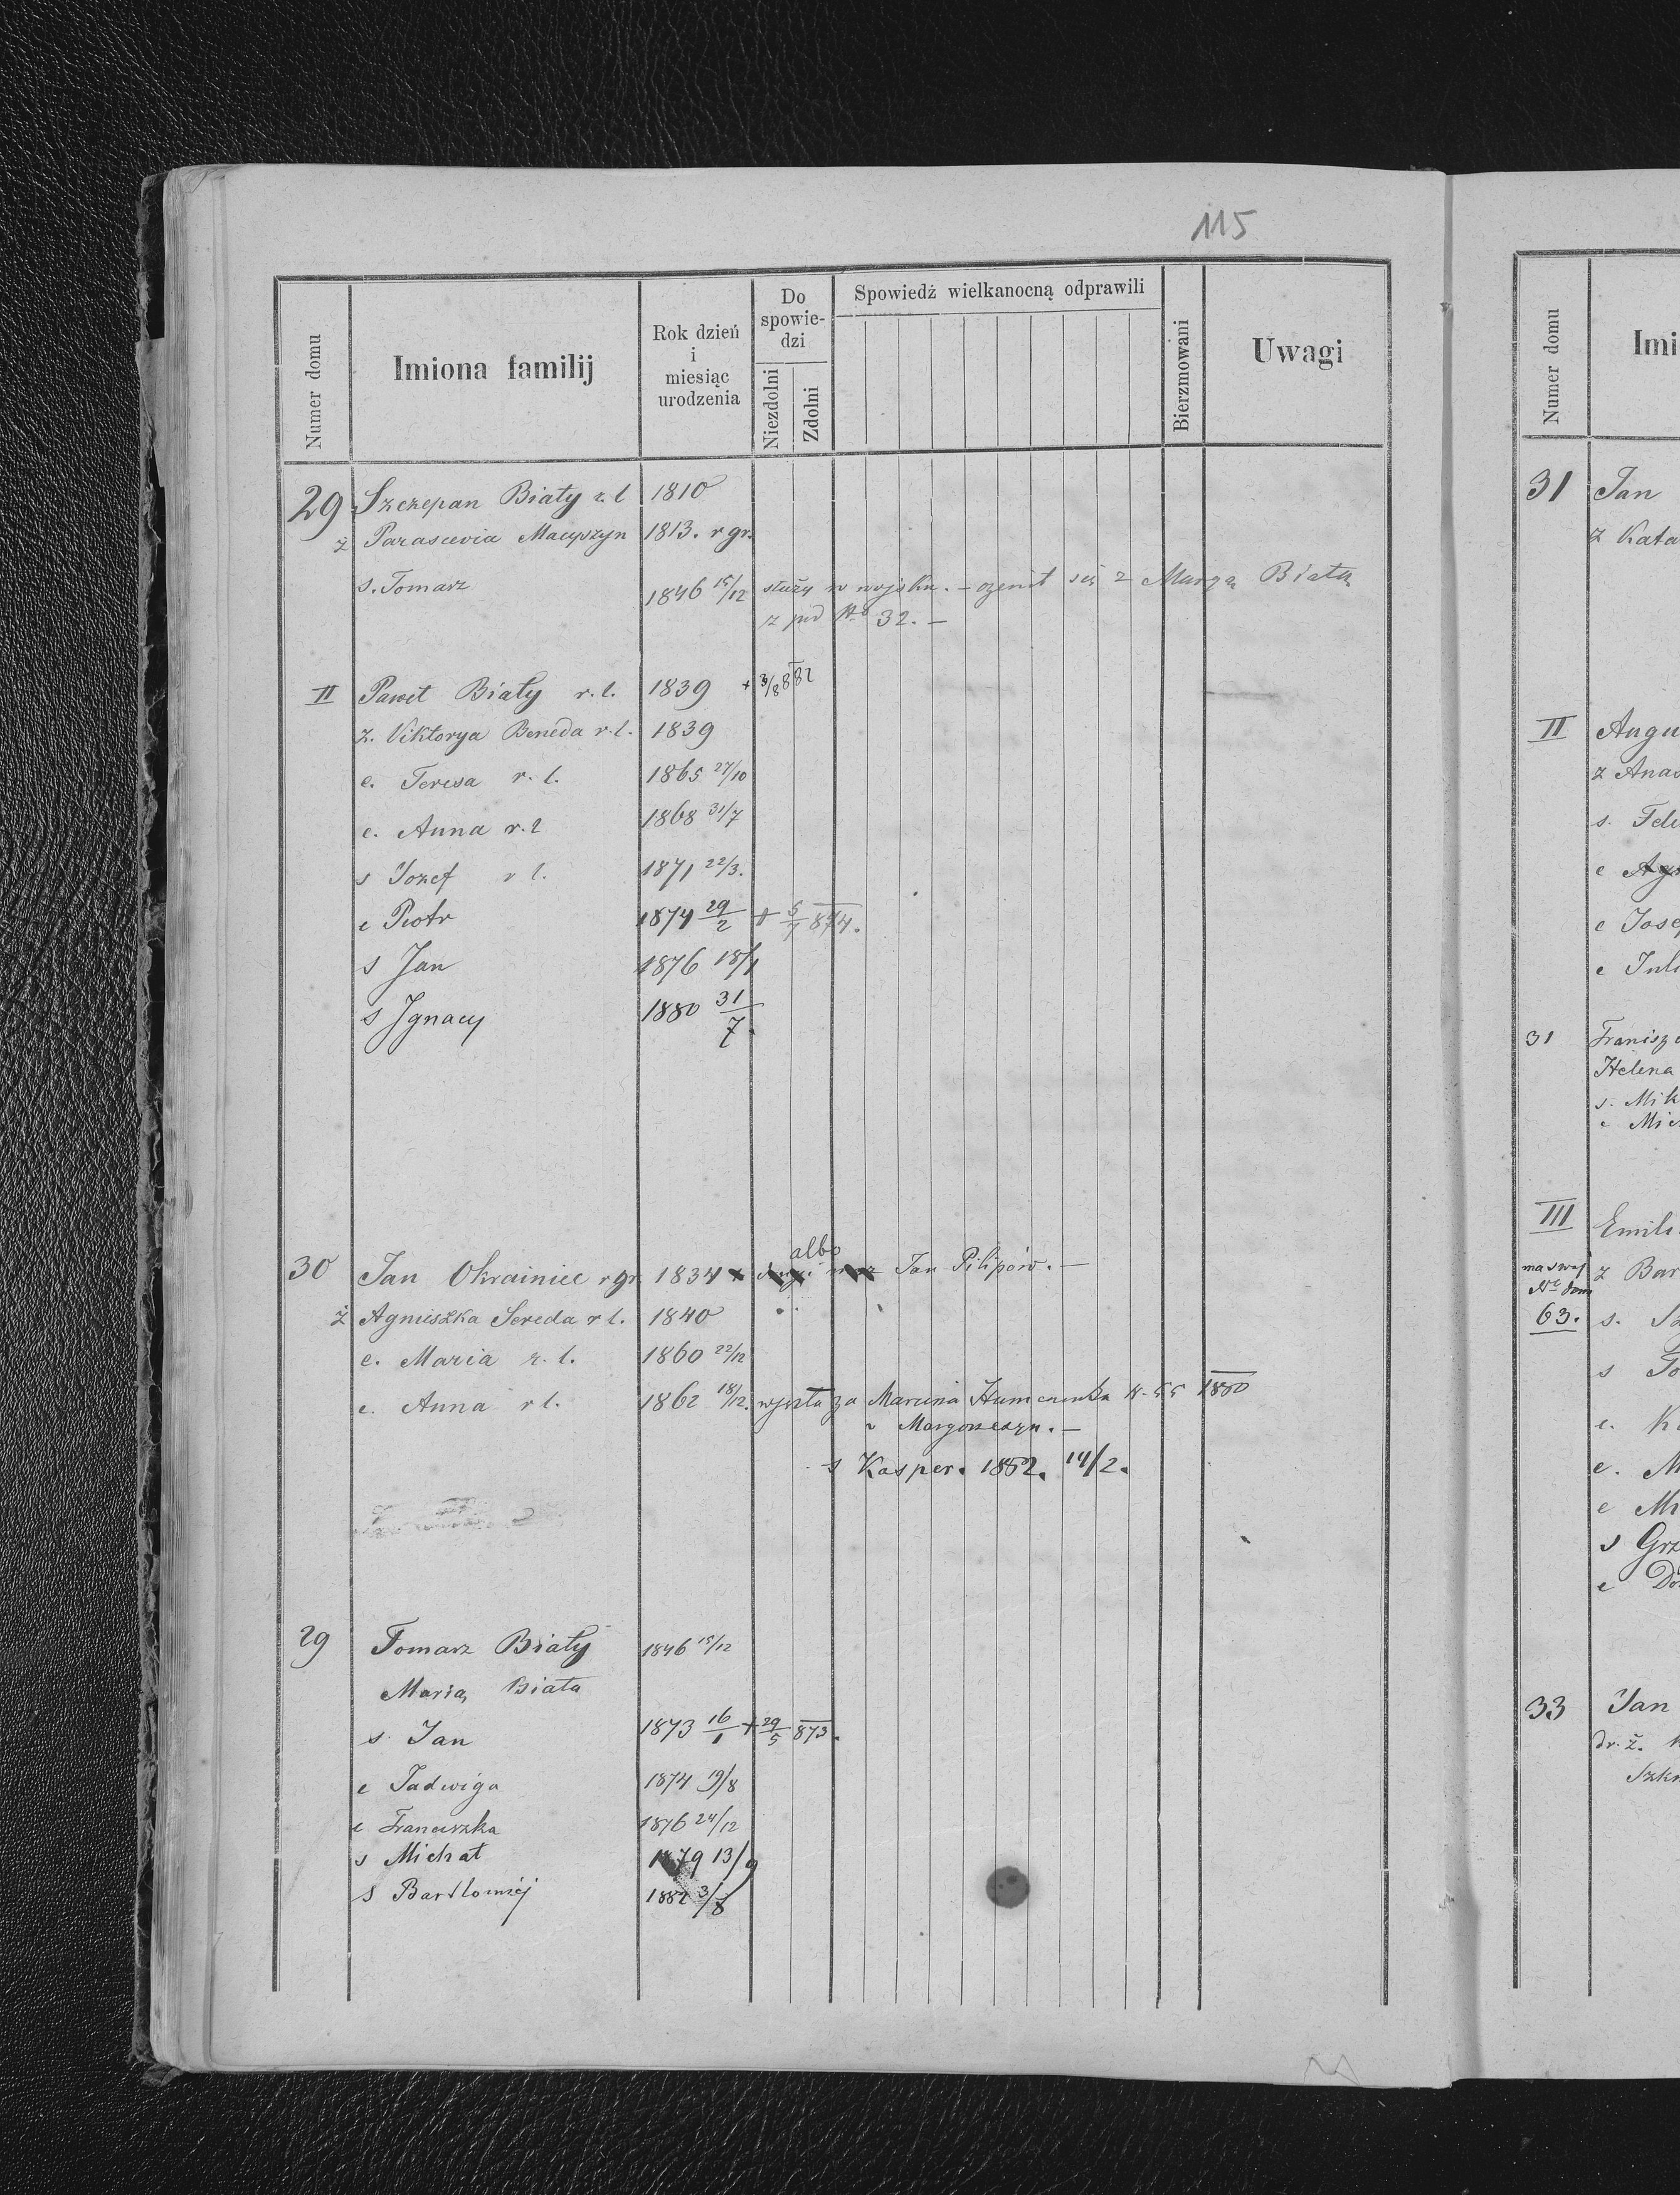 115
Numer domu
Imiona familij
Rok dzień i miesiąc urodzenia
Do spowiedzi
Niezdolni
Zdolni
Spowiedź wielkanocną odprawili
Bierzmowani
Uwagi
29 Szczepan Biały r. l 1810
ż Parascevia Macyszyn 1813. r gr.
s. Tomasz 1846 15/12 służy w wojsku. – ożenił się z Marią Białą
z pod No 32. –
II Paweł Biały r. l. 1839 + 3/8 882
ż. Viktorya Beneda r. l. 1839
c. Teresa r. l. 1865 27/10
c. Anna r. l 1868 31/7
s Jozef r l. 1871 22/3.
c Piotr 1874 29/2 + 5/7 874.
s Jan 1876 18/1
s Ignacy 1880 31/7.
albo
30 Jan Okrainiec r gr 1834 Jan Pilipów. –
ż Agnieszka Sereda r l. 1840
c. Maria r. l. 1860 22/12
c. Anna r l. 1862 18/12. wyszła za Marcina N. 55 1880
s Kasper. 1882. 14/2.
29 Tomasz Biały 1846 15/12
Maria Biała
s. Jan 1873 16/1 + 29/5 873.
c Jadwiga 1874 19/8
c Franciszka 1876 24/12
s Michał 1879 13/9
s Bartłomiéj 1882 3/8
Numer domu
Imi
31 Jan
ż Kata
II Augu
ż Anas
s. Fel
c Jose
c Juli
31 Franisz
Helena
s. Mik
c Mic
III Emili
ma swój No dom
63.
ż Bar
s. Sz
s To
c. K
c. M
c Mi
s Grz
c Do
33 Jan
dr. ż.
Szk